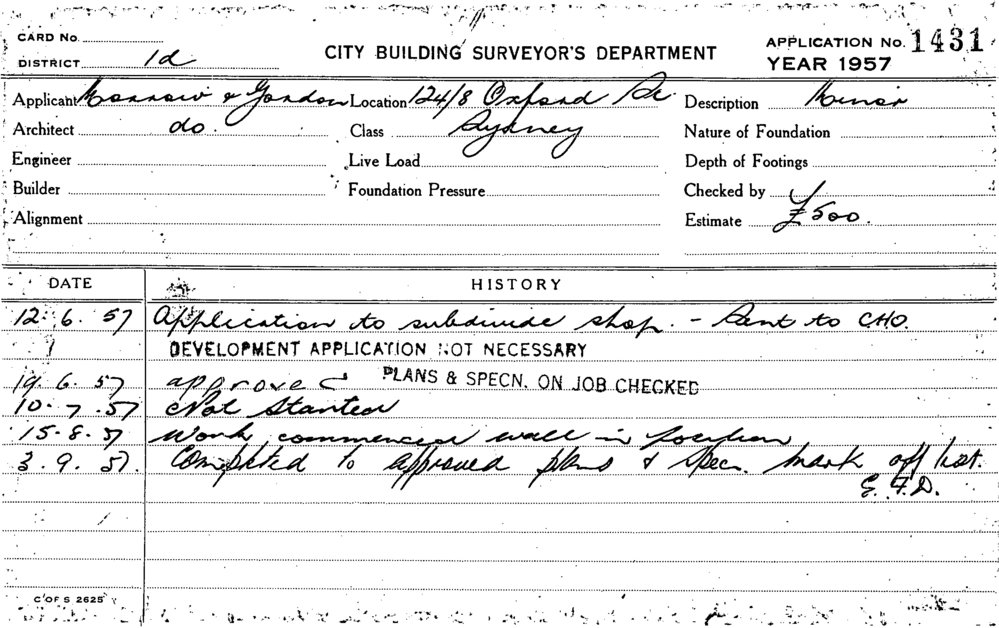 CARD No.
DISTRICT 1d
CITY BUILDING SURVEYOR'S DEPARTMENT
APPLICATION No. 1431
YEAR 1957
Applicant Morrow & Gordon Location 124/8 Oxford St. Description Minor
Architect do. Class Sydney Nature of Foundation
Engineer Live Load Depth of Footings
Builder Foundation Pressure Checked by
Alignment Estimate £500.
DATE HISTORY
12. 6. 57 Application to subdivide shop. - Sent to CHO.
DEVELOPMENT APPLICATION NOT NECESSARY
19. 6. 57 approved PLANS & SPECN. ON JOB CHECKED
10. 7. 57 Not Started
15. 8. 57 Work commenced wall in position
3. 9. 57. Completed to approved plans & specn. Mark off list.
G. F. D.
C OF S 2625